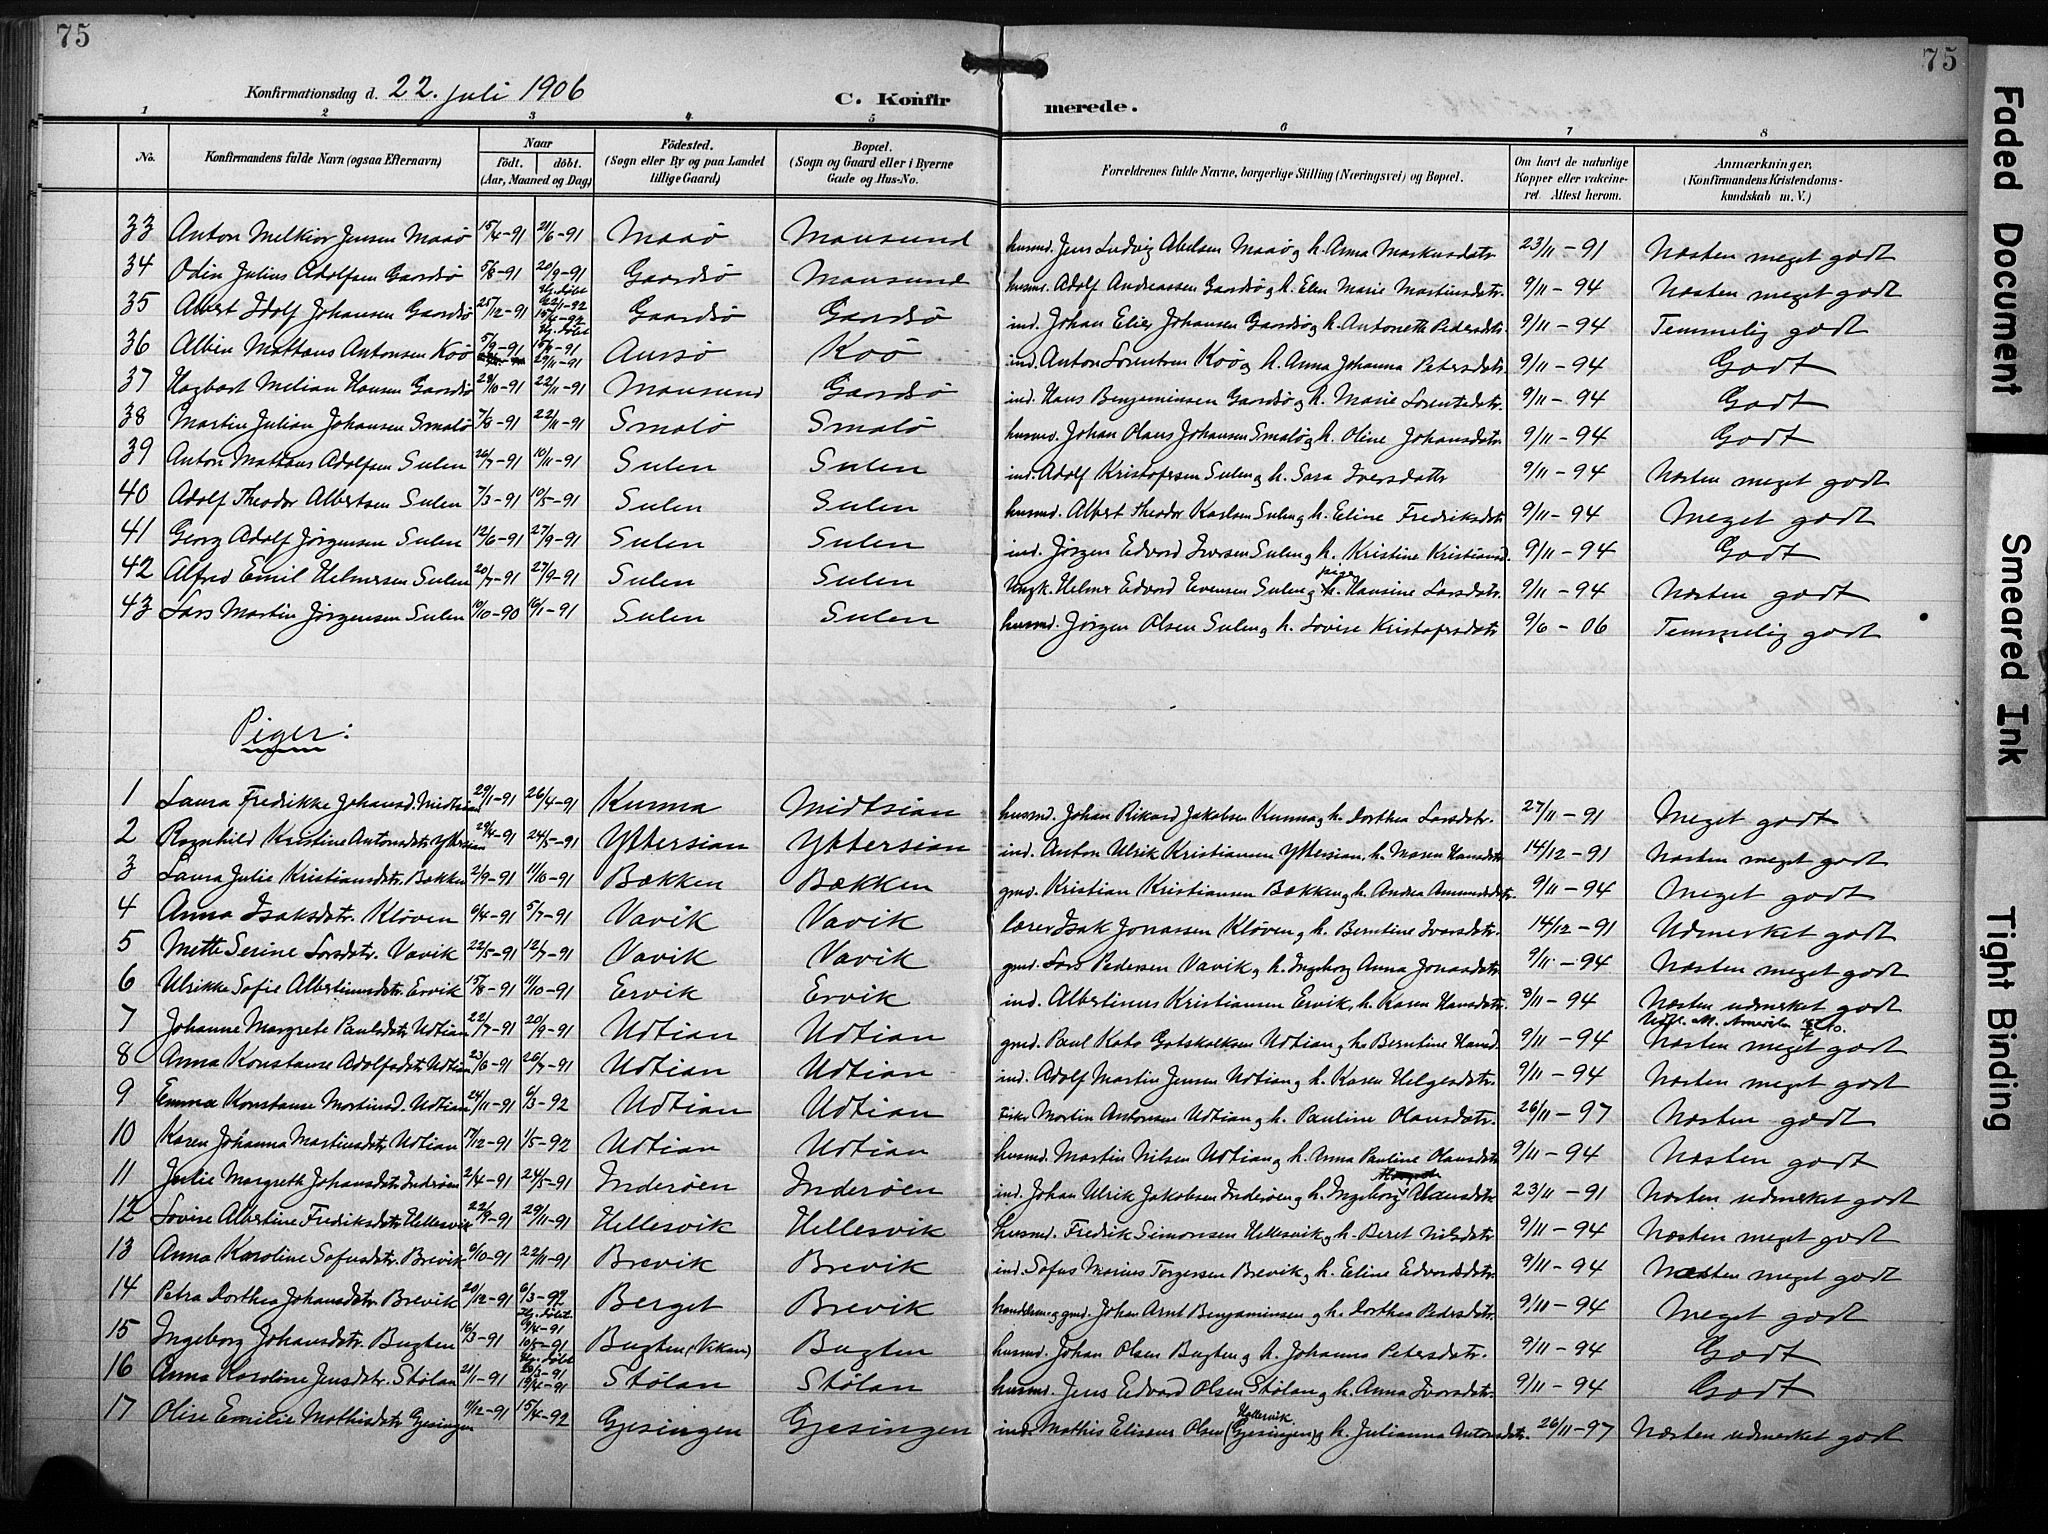 75
75
Konfirmationsdag d. 22. juli 1906
C. Konfirmerede.
1 2 3 4 5 6 7 8
No.
Konfirmandens fulde Navn (ogsaa Efternavn)
Naar
født. døbt.
(Aar, Maaned og Dag)
Fødested.
(Sogn eller By og paa Landet
tillige Gaard)
Bopæl.
(Sogn og Gaard eller i Byerne
Gade og Hus-No.
Forældrenes fulde Navne, borgerlige Stilling (Næringsvei) og Bopæl.
Om havt de naturlige
Kopper eller vakcine-
ret. Attest herom.
Anmærkninger,
(Konfirmandens Kristendoms-
kundskab m. V.)
33 Anton Melkior Jensen Maaø 15/4-91 21/6-91 Maaø Mausund husmd. Jens Ludvig Abelsen Maaø og h. Anna Markusdatr 23/11-91 Næsten meget godt
34 Odin Julius Adolfsen Gaardsø 5/8-91 20/9-91 Gaardsø Mausund husmd. Adolf Andreassen Gaardsø og h. Elen Marie Martinsdatr. 9/11-94 Næsten meget godt
35 Albert Idolf Johansen Gaardsø 25/12-91 Hj. døbt 15/4-92 Gaardsø Gaardsø ind. Johan Elias Johansen Gaardsø og h. Antonette Pedersdatr 9/11-94 Temmelig godt
36 Albin Mattæus Antonsen Koø 5/9-91 Hj. døbt 29/11-91 Aursø Koø ind. Anton Lorentsen Koø og h. Anna Johanna Petersdatr. 9/11-94 Godt
37 Hagbart Melian Hansen Gaardsø 28/10-91 22/11-91 Mausund Gaardsø ind. Hans Benjaminsen Gaardsø og h. Marie Lorentsdatr. 9/11-94 Godt
38 Martin Julian Johansen Smalø 7/8-91 22/11-91 Smalø Smalø husmd. Johan Olaus Johansen Smalø og h. Oline Johansdatr. 9/11-94 Godt
39 Anton Mattæus Adolfsen Sulen 26/7-91 10/11-91 Sulen Sulen ind. Adolf Kristofersen Sulen og h. Sara Iversdatr 9/11-94 Næsten meget godt
40 Adolf Theodor Albertsen Sulen 7/3-91 10/5-91 Sulen Sulen husmd. Albert Theodor Karlsen Sulen og h. Eline Fredriksdatr 9/11-94 Meget godt
41 Georg Adolf Jørgensen Sulen 12/6-91 27/9-91 Sulen Sulen ind. Jørgen Edvard Iversen Sulen og h. Kristine Kristiansd. 9/11-94 Godt
42 Alfred Emil Helmersen Sulen 20/7-91 27/9-91 Sulen Sulen Ungk. Helmer Edvard Evensen Sulen og pige Hansine Larsdatr. 9/11-94 Næsten godt
43 Lars Martin Jørgensen Sulen 19/10-90 16/1-91 Sulen Sulen husmd. Jørgen Olsen Sulen og h. Lovise Kristofersdatr 9/6-06 Temmelig godt
Piger:
1 Laura Fredrikke Johansd. Midtsian 29/1-91 26/4-91 Kunna Midtsian husmd. Johan Rikard Jakobsen Kunna og h. Dorthea Larsdatr. 27/11-91 Meget godt
2 Ragnhild Kristine Antonsdatr Yttersian 29/4-91 24/5-91 Yttersian Yttersian ind. Anton Ulrik Kristiansen Yttersian, h. Maren Hansdatr 14/12-91 Næsten meget godt
3 Laura Julie Kristiansdatr. Bækken 2/9-91 11/10-91 Bækken Bækken gmd. Kristian Kristiansen Bækken og h. Andrea Amundsdatr 9/11-94 Meget godt
4 Anna Isaksdatr. Kløven 6/4-91 5/7-91 Vavik Vavik lærer Isak Jonassen Kløven og h. Berntine Ivarsdatr. 14/12-91 Udmerket godt
5 Mette Serine Larsdatr. Vavik 22/5-91 12/7-91 Vavik Vavik gmd. Lars Pedersen Vavik og h. Ingeborg Anna Jonasdatr. 9/11-94 Næsten meget godt
6 Ulrikke Sofie Albertinusdatr. Ervik 15/8-91 11/10-91 Ervik Ervik ind. Albertinus Kristiansen Ervik, h. Karen Hansdatr. 9/11-94 Næsten udmerket godt
7 Johanne Margrete Paulsdatr. Udtian 22/7-91 20/9-91 Udtian Udtian gmd. Paul Kato Gotskalksen Udtian og h. Berntine Hansd. 9/11-94 Næsten meget godt
8 Anna Konstanse Adolfsdatr. Udtian 23/6-91 26/7-91 Udtian Udtian ind. Adolf Martin Jensen Udtian og h. Karen Helgesdatr. 9/11-94 Næsten meget godt
9 Emma Konstanse Martinsd. Udtian 24/11-91 6/3-92 Udtian Udtian Fisker Martin Antonsen Udtian og h. Pauline Olausdatr. 26/11-97 Næsten godt
10 Karen Johanna Martinsdatr. Udtian 17/12-91 1/5-92 Udtian Udtian husmd. Martin Nilsen Udtian og h. Anna Pauline Olausdatr 9/11-94 Næsten godt
11 Julie Margreth Johansdatr. Inderøen 2/4-91 24/5-91 Inderøen Inderøen ind. Johan Ulrik Jakobsen Inderøen og h. Ingeborg 23/11-91 Næsten udmerket godt
12 Lovise Albertine Fredriksdatr. Hellesvik 22/9-91 29/11-91 Hellesvik Hellesvik husmd. Fredrik Simonsen Hellesvik og h. Beret Nilsdatr 9/11-94 Næsten meget godt
13 Anna Karoline Sofusdatr. Brevik 6/10-91 22/11-91 Brevik Brevik ind. Sofus Marius Torgersen Brevik og h. Eline Edvardsdatr. 9/11-94 Næsten meget godt
14 Petra Dorthea Johansdatr. Brevik 20/12-91 6/3-92 Berget Brevik handelsm. og gmd. Johan Arnt Benjaminsen og h. Dorthea Pedersdatr. 9/11-94 Meget godt
15 Ingeborg Johansdatr. Bugten 16/3-91 Hj. døbt 9/4-91 10/5-91 Bugten (Vikan) Bugten husmd. Johan Olsen Bugten og h. Johanna Petersdatr. 9/11-94 Godt
16 Anna Karoline Jensdatr. Stølan 21/1-91 Hj. døbt 19/4-91 Stølan Stølan husmd. Jens Edvard Olsen Stølan og h. Anna Ivarsdatr. 9/11-94 Godt
17 Olise Emilie Mathisdatr. Gjesingen 11/12-91 15/4-92 Gjesingen Gjesingen ind. Mathis Eliseus Olsen Hellesvik (Gjesingen) og h. Julianna Antonsdatr. 26/11-97 Næsten udmerket godt
Faded Document
Smeared Ink
Tight Binding